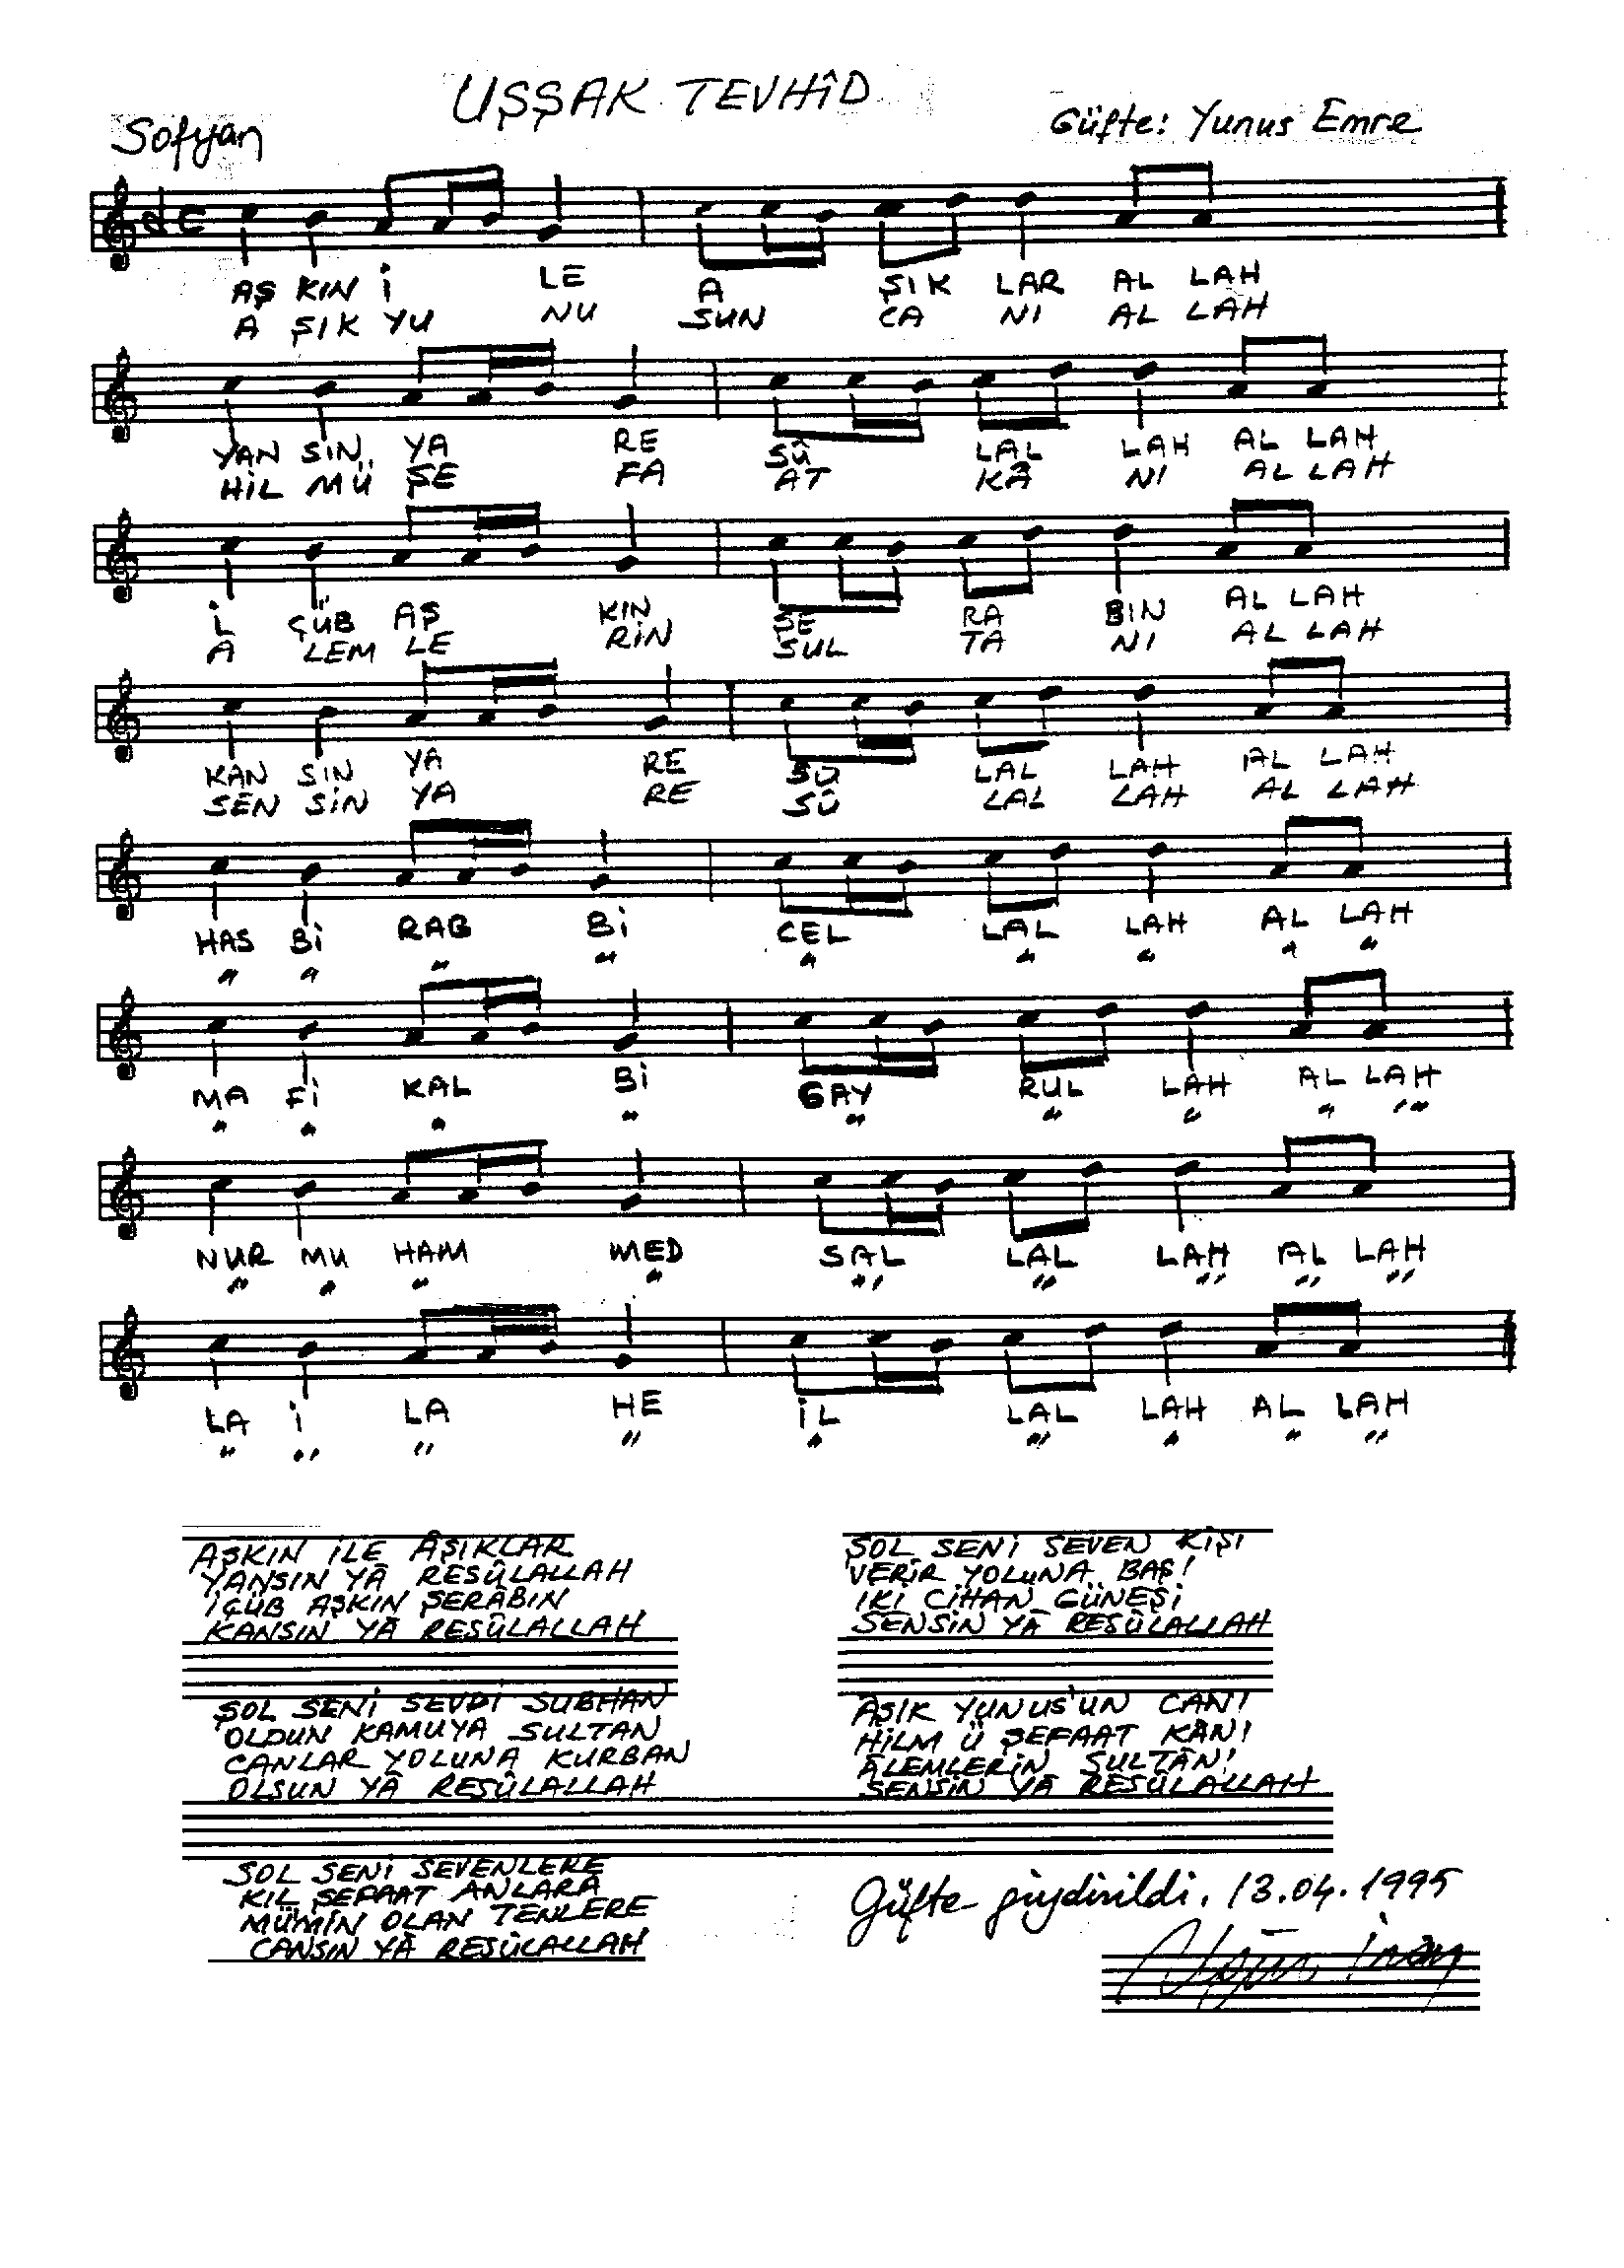 UŞŞAK TEVHÎD
Sofyan
Güfte: Yunus Emre
AŞ KIN İ LE A ŞIK LAR AL LAH
A ŞIK YU NU SUN CA NI AL LAH
YAN SIN YA RE SÛ LAL LAH AL LAH
HİL MÜ ŞE FA AT KÂ NI AL LAH
İ ÇÜB AŞ KIN ŞE RA BIN AL LAH
A LEM LE RİN SUL TA NI AL LAH
KAN SIN YA RE SÛ LAL LAH AL LAH
SEN SİN YA RE SÛ LAL LAH AL LAH
HAS Bİ RAB Bİ CEL LAL LAH AL LAH
" " " " " " " " "
MA Fİ KAL Bİ GAY RUL LAH AL LAH
" " " " " " " " "
NUR MU HAM MED SAL LAL LAH AL LAH
" " " " " " " " "
LA İ LA HE İL LAL LAH AL LAH
" " " " " " " " "
AŞKIN İLE ÂŞIKLAR
YANSIN YÂ RESÛLALLAH
İÇÜB AŞKIN ŞERÂBIN
KANSIN YÂ RESÛLALLAH
ŞOL SENİ SEVDİ SUBHAN
OLDUN KAMUYA SULTAN
CANLAR YOLUNA KURBAN
OLSUN YÂ RESÛLALLAH
ŞOL SENİ SEVENLERE
KIL ŞEFAAT ANLARA
MÜ'MİN OLAN TENLERE
CANSIN YÂ RESÛLALLAH
ŞOL SENİ SEVEN KİŞİ
VERİR YOLUNA BAŞI
İKİ CİHAN GÜNEŞİ
SENSİN YÂ RESÛLALLAH
ÂŞIK YUNUS'UN CANI
HİLM Ü ŞEFAAT KÂNI
ÂLEMLERİN SULTÂNI
SENSİN YÂ RESÛLALLAH
Güfte giydirildi. 13.04.1995